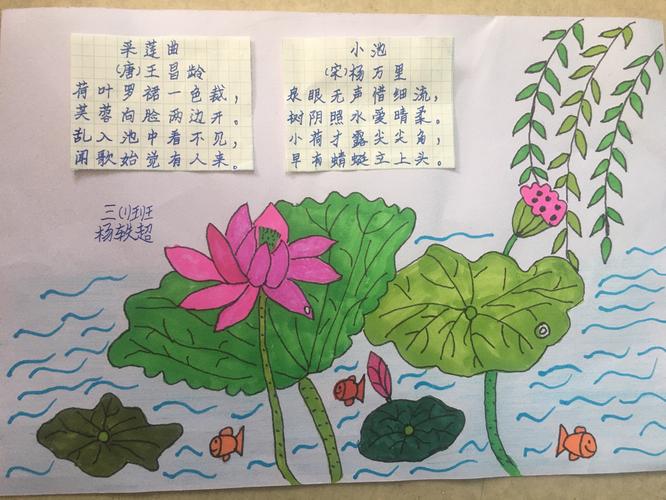 采莲曲
(唐)王昌龄
荷叶罗裙一色裁，
芙蓉向脸两边开。
乱入池中看不见，
闻歌始觉有人来。
小池
(宋)杨万里
泉眼无声惜细流，
树阴照水爱晴柔。
小荷才露尖尖角，
早有蜻蜓立上头。
三(1)班
杨轶超